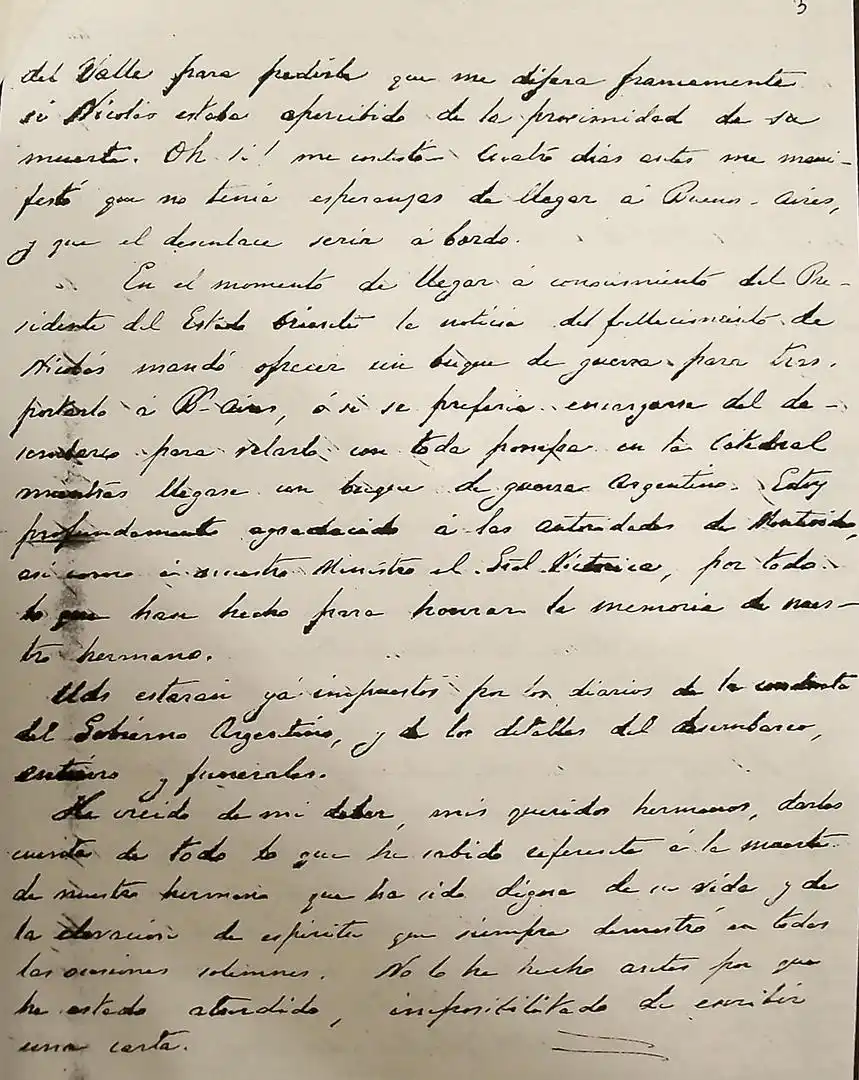 3
del Valle para pedirle que me dijera francamente
si Nicolás estaba apercibido de la proximidad de su
muerte. Oh si! me contestó. Cuatro dias antes me mani-
festó que no tenia esperanzas de llegar á Buenos-Aires,
y que el desenlace seria á bordo.
En el momento de llegar á conocimiento del Pre-
sidente del Estado Oriental la noticia del fallecimiento de
Nicolás mandó ofrecer un buque de guerra para tras-
portarlo á Bs Aires, ó si se preferia encargarse del de-
sembarco para velarlo con toda pompa en la Catedral
mientras llegase un buque de guerra Argentino. Estoy
profundamente agradecido á las autoridades de Montevideo,
asi como á nuestro Ministro el Gral Victorica, por todo
lo que han hecho para honrar la memoria de nues-
tro hermano.
Uds estarán yá impuestos por los diarios de la conducta
del Gobierno Argentino, y de los detalles del desembarco,
entierro y funerales.
He creido de mi deber, mis queridos hermanos, darles
cuenta de todo lo que he sabido referente á la muerte
de nuestro hermano que ha sido digna de su vida y de
la elevacion de espíritu que siempre demostró en todas
las ocasiones solemnes. No lo he hecho antes por que
he estado aturdido, imposibilitado de escribir
una carta.